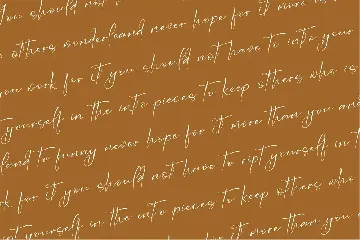 you should not
others wonderland never hope for it more
you work for it you should not have to into your
yourself in the into pieces to keep others who is
land to funny never hope for it more than you and
k for it you should not have to ript yourself in t
t yourself in the into pieces to keep others who
for it more than you